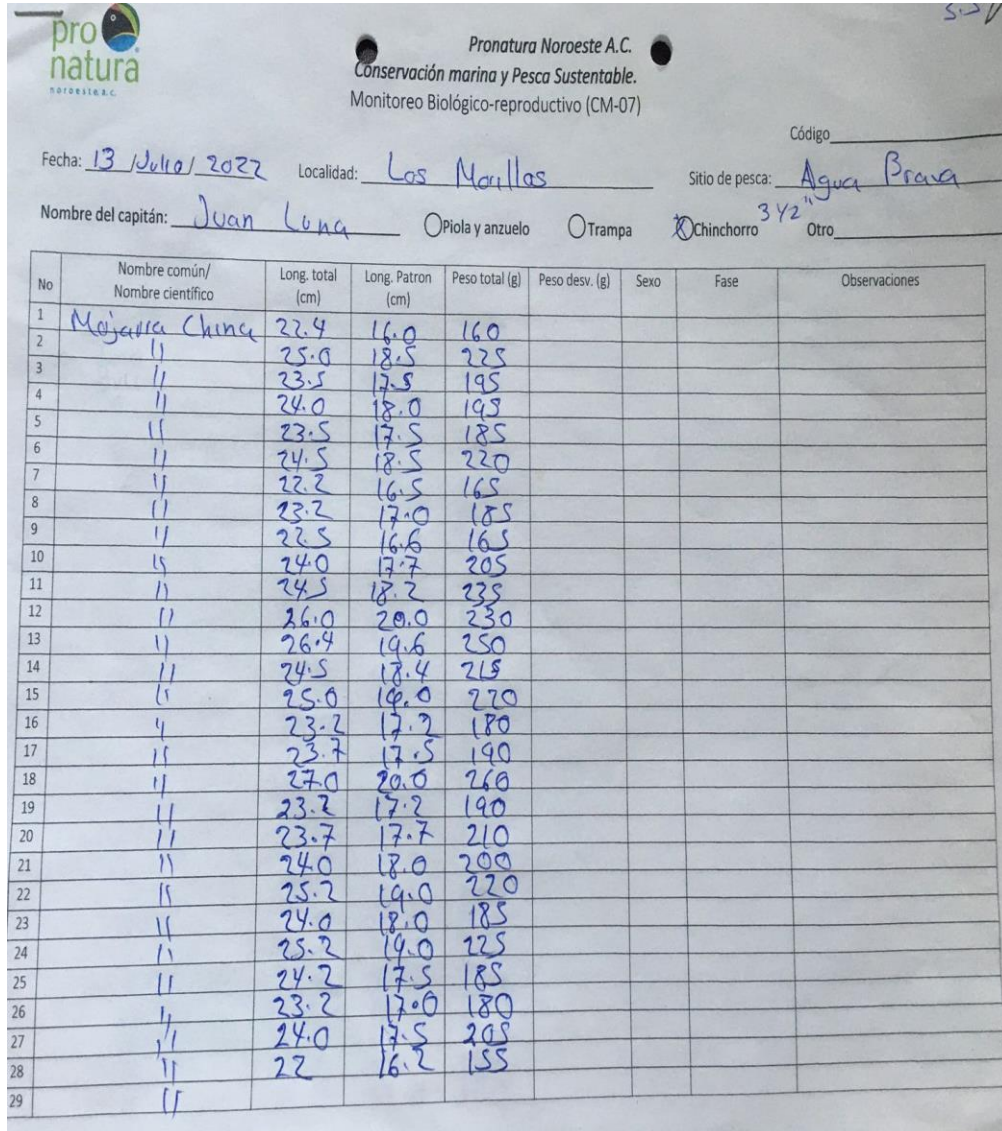 pro
natura
noroeste a.c.
Pronatura Noroeste A.C.
Conservación marina y Pesca Sustentable.
Monitoreo Biológico-reproductivo (CM-07)
Código
Fecha: 13 /Julio/ 2022 Localidad: Los Morillos Sitio de pesca: Agua Brava
Nombre del capitán: Juan Luna Piola y anzuelo Trampa Chinchorro 3 1/2" Otro
No Nombre común/ Nombre científico Long. total (cm) Long. Patron (cm) Peso total (g) Peso desv. (g) Sexo Fase Observaciones
1 Mojarra China 22.4 16.0 160
2 " 25.0 18.5 225
3 " 23.5 17.5 195
4 " 24.0 18.0 195
5 " 23.5 17.5 185
6 " 24.5 18.5 220
7 " 22.2 16.5 165
8 " 23.2 17.0 185
9 " 22.5 16.6 165
10 " 24.0 17.7 205
11 " 24.5 18.2 235
12 " 26.0 20.0 230
13 " 26.4 19.6 250
14 " 24.5 18.4 215
15 " 25.0 220
16 " 23.2 17.2 180
17 " 23.7 17.5 190
18 " 27.0 20.0 260
19 " 23.2 17.2 190
20 " 23.7 17.7 210
21 " 24.0 18.0 200
22 " 25.2 19.0 220
23 " 24.0 18.0 185
24 " 25.2 19.0 225
25 " 24.2 17.5 185
26 " 23.2 17.0 180
27 " 24.0 17.5 205
28 " 22 16.2 155
29 "